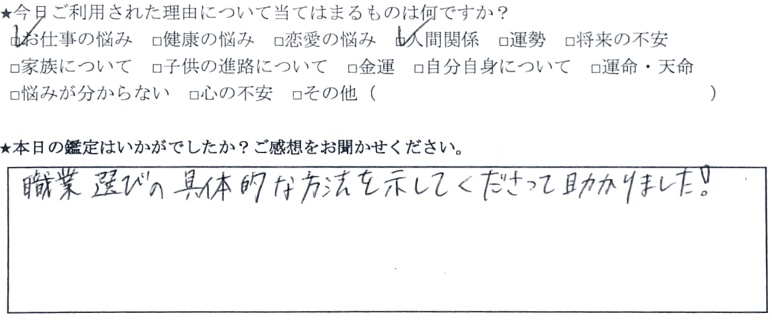 ★今日ご利用された理由について当てはまるものは何ですか？
☑お仕事の悩み　□健康の悩み　□恋愛の悩み　☑人間関係　□運勢　□将来の不安
□家族について　□子供の進路について　□金運　□自分自身について　□運命・天命
□悩みが分からない　□心の不安　□その他（　　　　　　　　　　　　　　　　　　）
★本日の鑑定はいかがでしたか？ご感想をお聞かせください。
職業選びの具体的な方法を示してくださって助かりました!